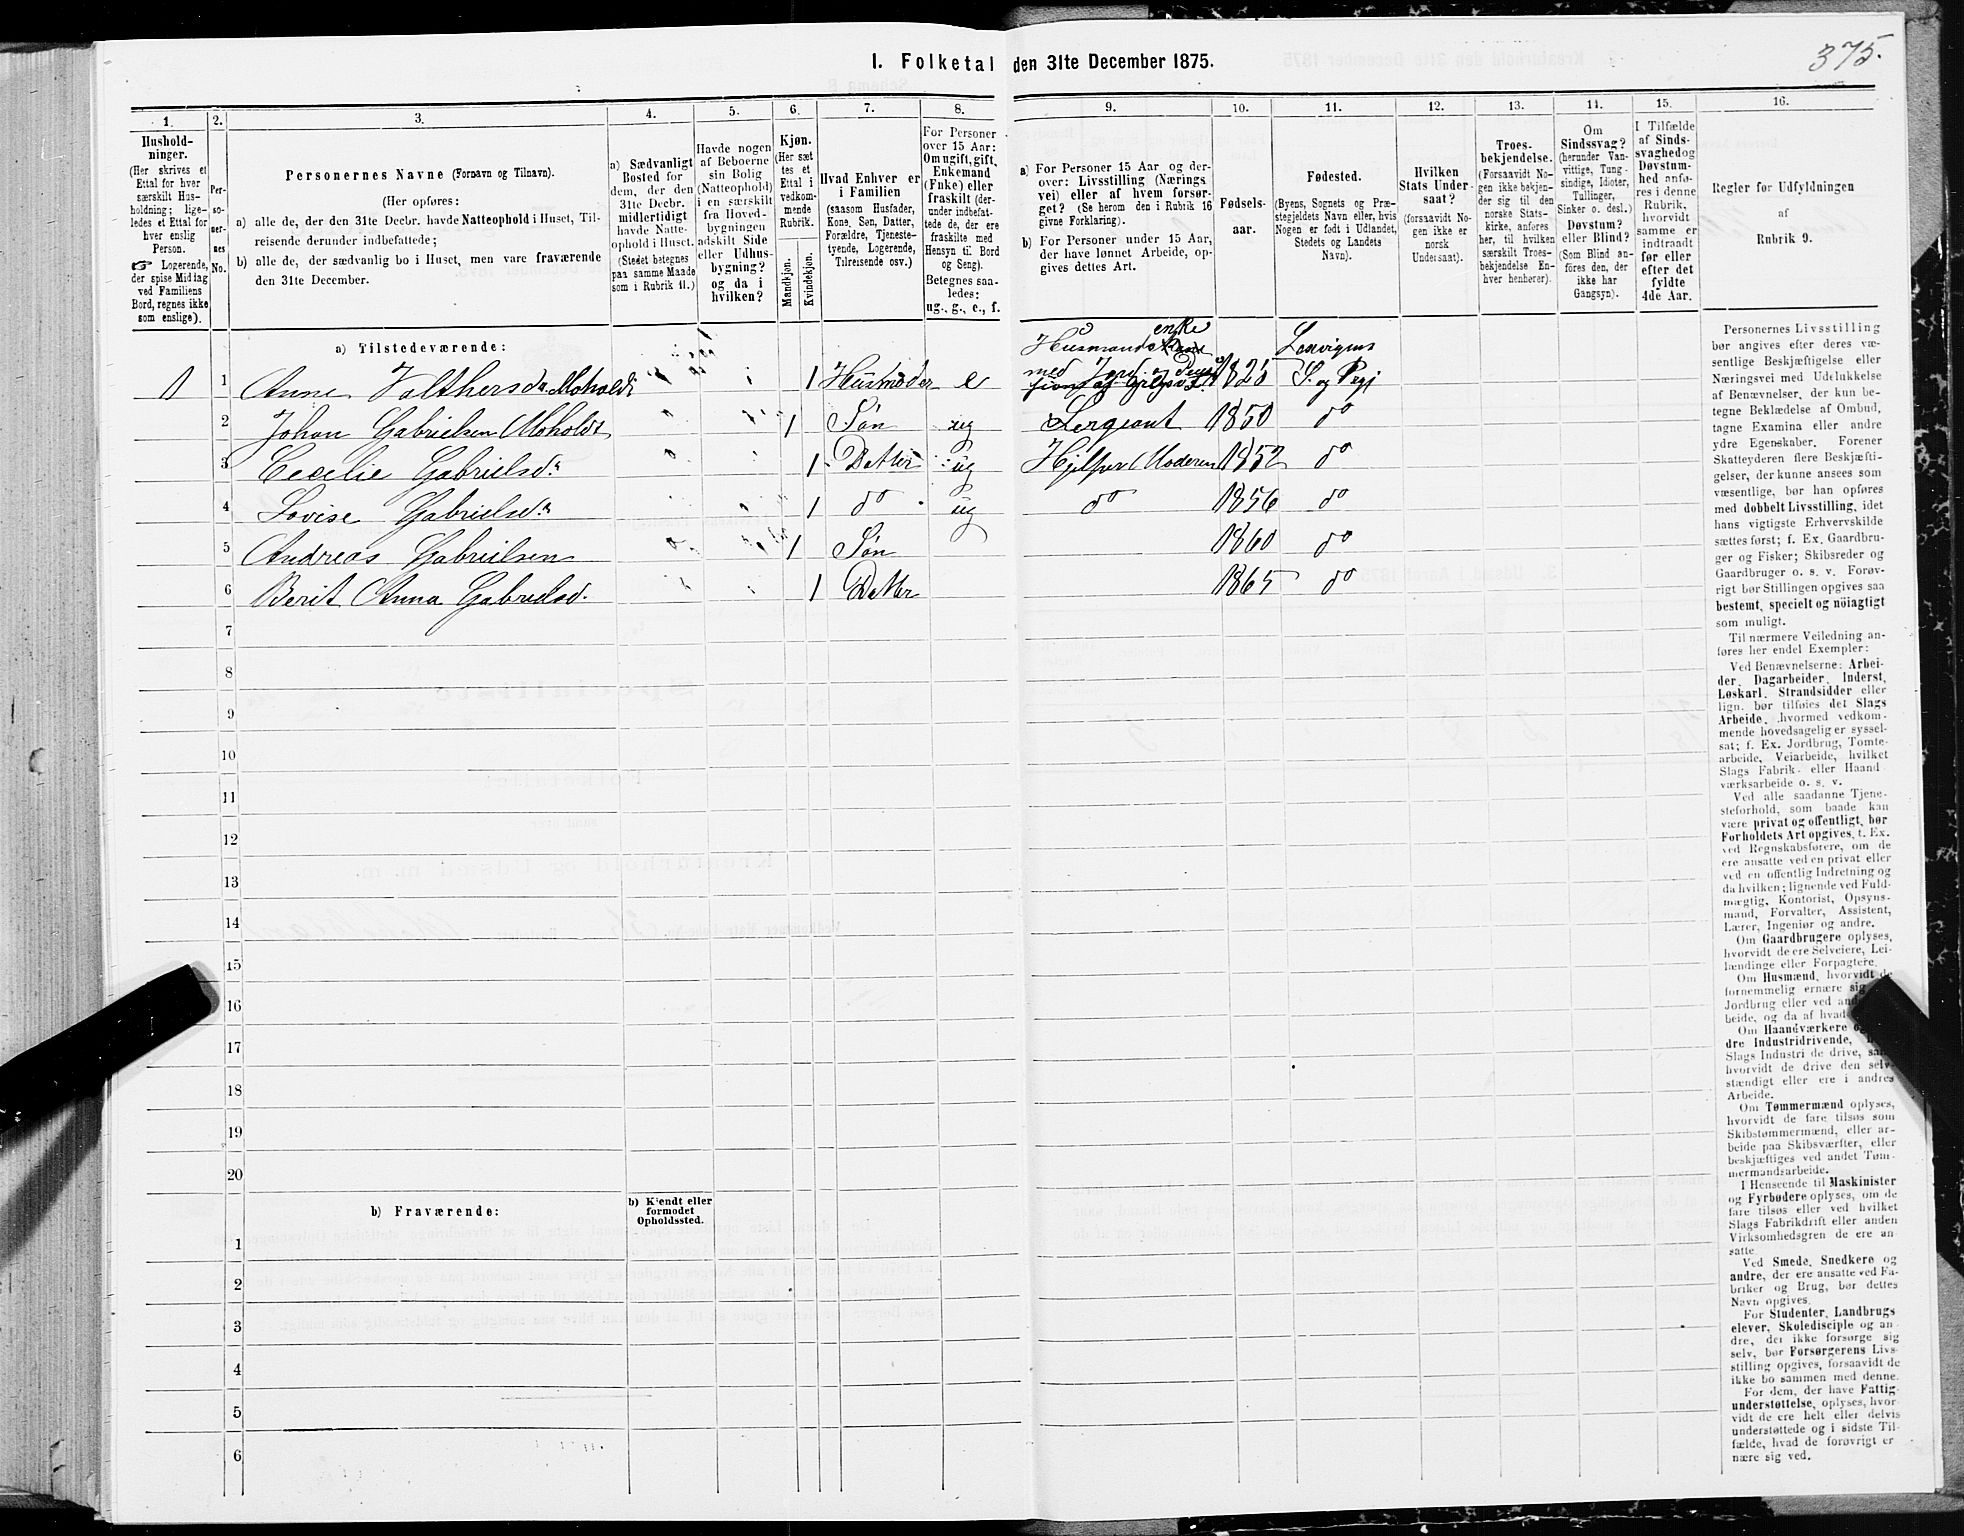 375.
I. Folketal den 31te December 1875.
1. 2. 3. 4. 5. 6. 7. 8. 9. 10. 11. 12. 13. 14. 15. 16.
Hushold-
ninger.
(Her skrives et
Ettal for hver
særskilt Hus-
holdning; lige-
ledes et Ettal for
hver enslig
Person.
☞ Logerende,
der spise Middag
ved Familiens
Bord, regnes ikke
som enslige).
Per-
so-
ner-
nes
No.
Personernes Navne (Fornavn og Tilnavn).
(Her opføres:
a) alle de, der den 31te Decbr. havde Natteophold i Huset, Til-
reisende derunder indbefattede;
b) alle de, der sædvanlig bo i Huset, men vare fraværende
den 31te December.
a) Sædvanligt
Bosted for
dem, der den
31te Decbr.
midlertidigt
havde Natte-
ophold i Huset.
(Stedet betegnes
paa samme Maade
som i Rubrik 11.)
Havde nogen
af Beboerne
sin Bolig
(Natteophold)
i en særskilt
fra Hoved-
bygningen
adskilt Side
eller Udhus-
bygning?
og da i
hvilken?
Kjøn.
(Her sæt
tes et
Ettal i
vedkom-
mende
Rubrik.
Mandkjøn.
Kvindekjøn.
Hvad Enhver er
i Familien
(saasom Husfader,
Kone, Søn, Datter,
Forældre, Tjeneste-
tyende, Logerende,
Tilreisende osv.)
For Personer
over 15 Aar:
Om ugift, gift,
Enkemand
(Enke) eller
fraskilt (der-
under indbefat-
tede de, der ere
fraskilte med
Hensyn til Bord
og Seng).
Betegnes saa-
ledes:
ug., g., e., f.
a) For Personer 15 Aar og der-
over: Livsstilling (Nærings
vei) eller af hvem forsør-
get? (Se herom den i Rubrik 16
givne Forklaring).
b) For Personer under 15 Aar,
der have lønnet Arbeide, op-
gives dettes Art.
Fødsels-
aar.
Fødested.
(Byens, Sognets og Præ-
stegjeldets Navn eller, hvis
Nogen er født i Udlandet,
Stedets og Landets
Navn).
Hvilken
Stats Under-
saat?
(forsaavidt No-
gen ikke er
norsk
Undersaat).
Troes-
bekjendelse.
(Forsaavidt No-
gen ikke bekjen-
der sig til den
norske Stats-
kirke, anføres
her, til hvilken
særskilt Troes-
bekjendelse En-
hver henhører).
Om
Sindssvag?
(herunder Van-
vittige, Tung-
sindige, Idioter,
Tullinger,
Sinker o. desl.)
Døvstum?
eller Blind?
(Som Blind an-
føres den, der
ikke har
Gangsyn).
I Tilfælde
af Sinds-
svaghed og
Døvstum-
hed anfø-
res i denne
Rubrik,
hvorvidt
samme er
indtraadt
før eller
efter det
fyldte
4de Aar.
Regler for Udfyldningen
af
Rubrik 9.
a) Tilstedeværende:
enke
Husmands
med Jord
1 1 Anne Valthersdr Moholdt 1 Husmoder e 1825 S. og Pegj
2 Johan Gabrielsen Moholdt 1 Søn ug Sergeant 1850 do
3 Cecelie Gabrielsdr 1 Datter ug Hjelper Moderen 1852 do
4 Lovise Gabrielsdr 1 do ug do 1856 do
5 Andreas Gabrielsen 1 Søn 1860 do
6 Berit Anna Gabrielsd. 1 Datter 1865 do
7
8
9
10
11
12
13
14
15
16
17
18
19
20
b) Fraværende:
b) Kjendt eller
formodet
Opholdssted.
1
2
3
4
5
6
Personernes Livsstilling
bør angives efter deres væ-
sentlige Beskjæftigelse eller
Næringsvei med Udelukkelse
af Benævnelser, der kun be-
tegne Beklædelse af Ombud,
tagne Examina eller andre
ydre Egenskaber. Forener
Skatteyderen flere Beskjæfti-
gelser, der kunne ansees som
væsentlige, bør han opføres
med dobbelt Livsstilling, idet
hans vigtigste Erhvervskilde
sættes først; f. Ex. Gaardbru-
ger og Fisker; Skibsreder og
Gaardbruger o. s. v. Forøv-
rigt bør Stillingen opgives saa
bestemt, specielt og nöiagtigt
som muligt.
Til nærmere Veiledning an-
føres her endel Exempler:
Ved Benævnelserne: Arbei-
der, Dagarbeider, Inderst,
Løskarl, Strandsidder eller
lign. bør tilføies det Slags
Arbeide, hvormed vedkom-
mende hovedsagelig er syssel-
sat; f. Ex. Jordbrug, Tomte-
arbeide, Veiarbeide, hvilket
Slags Fabrik- eller Haand
værksarbeide o. s. v.
Ved alle saadanne Tjene-
steforhold, som baade kan
være privat og offentligt, bør
Forholdets Art opgives, t. Ex.
ved Regnskabsførere, om de
ere ansatte ved en privat eller
ved en offentlig Indretning og
da hvilken; lignende ved Fuld-
mægtig, Kontorist, Opsyns-
mand, Forvalter, Assistent,
Lærer, Ingeniør og andre.
Om Gaardbrugere oplyses,
hvorvidt de ere Selveiere, Lei-
lændinge eller Forpagtere.
Om Husmænd, hvorvidt de
fornemmelig ernære sig
Jordbrug eller ved
beide, og da af hvad
Om Haandværkere
dre Industridrivende,
Slags Industri de drive,
hvorvidt de drive den selv-
stændigt eller ere i andres
Arbeide.
Om Tømmermænd oplyses,
hvorvidt de fare tilsøs som
Skibstømmermænd, eller ar-
beide paa Skibsværfter, eller
beskjæftiges ved andet Tøm-
mermandsarbeide.
I Henseende til Maskinister
og Fyrbødere oplyses, om de
fare tilsøs eller ved hvilket
Slags Fabrikdrift eller anden
Virksomhedsgren de ere an-
satte
Ved Smede, Snedkere og
andre, der ere ansatte ved Fa-
briker og Brug, bør dettes
Navn opgives.
For Studenter, Landbrugs
elever, Skoledisciple og an-
dre, der ikke forsørge sig
selv, bør Forsørgerens Livs-
stilling opgives, forsaavidt de
ikke bo sammen med denne.
For dem, der have Fattig-
understøttelse, oplyses, hvor-
vidt de ere helt eller delvis
understøttede og i sidste Til-
fælde, hvad de forøvrigt er
nære sig ved.